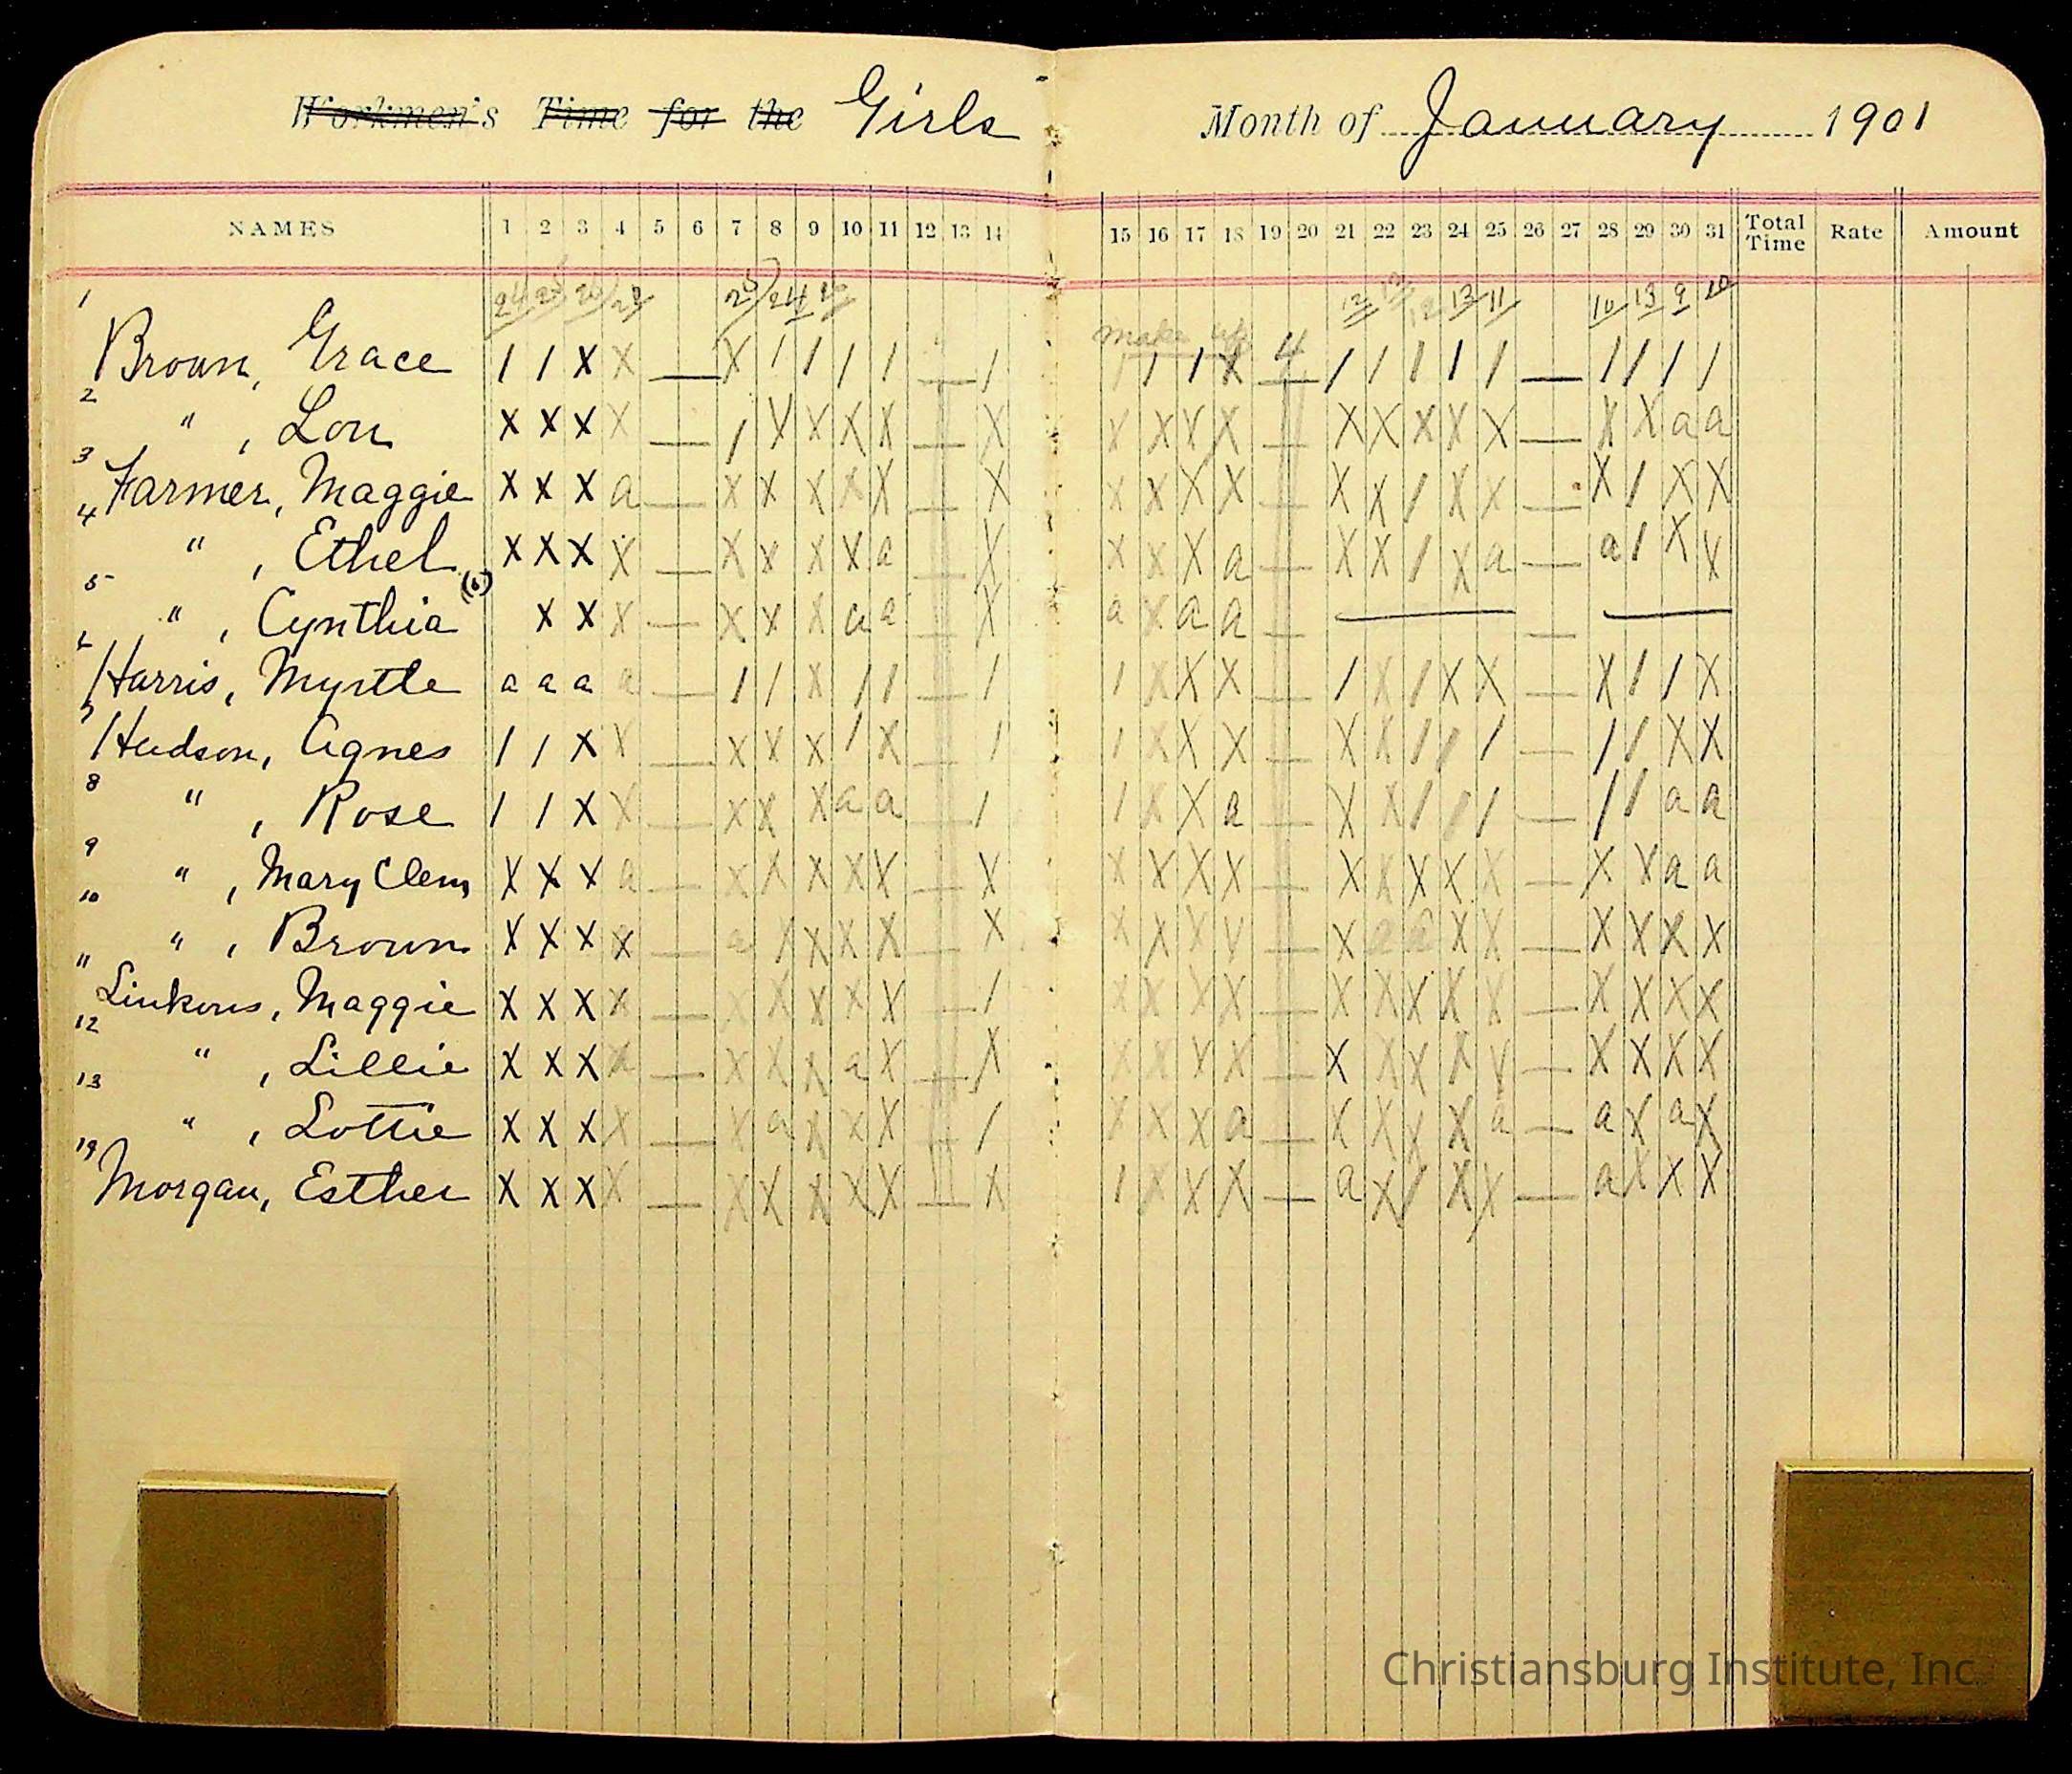 Workmen's Time for the Girls Month of January 1901
NAMES 1 2 3 4 5 6 7 8 9 10 11 12 13 14 15 16 17 18 19 20 21 22 23 24 25 26 27 28 29 30 31 Total Time Rate Amount
make up 4
1 Brown, Grace 1 1 X X — X 1 1 1 1 — 1 1 1 1 X — 1 1 1 1 1 — 1 1 1 1
2 " , Lou X X X X — 1 X X X X — X X X X X — X X X X X — X X a a
3 Farmer, Maggie X X X a — X X X X X — X X X X X — X X 1 X X — X 1 X X
4 " , Ethel X X X X — X X X X a — X X X X a — X X 1 X a — a 1 X X
5 " , Cynthia X X X — X X X a a — X a X a a — — — —
6 Harris, Myrtle a a a a — 1 1 X 1 1 — 1 1 X X X — 1 X 1 X X — X 1 1 X
7 Hudson, Agnes 1 1 X X — X X X 1 X — 1 1 X X X — X X 1 1 1 — 1 1 X X
8 " , Rose 1 1 X X — X X X a a — 1 1 X X a — X X 1 1 1 — 1 1 a a
9 " , Mary Clem X X X a — X X X X X — X X X X X — X X X X X — X X a a
10 " , Brown X X X X — a X X X X — X X X X X — X a a X X — X X X X
11 Linkous, Maggie X X X X — X X X X X — 1 X X X X — X X X X X — X X X X
12 " , Lillie X X X X — X X X a X — X X X X X — X X X X X — X X X X
13 " , Lottie X X X X — X a X X X — 1 X X X a — X X X X a — a X a X
14 Morgan, Esther X X X X — X X X X X — X 1 X X X — a X 1 X X — a X X X
Christiansburg Institute, Inc.